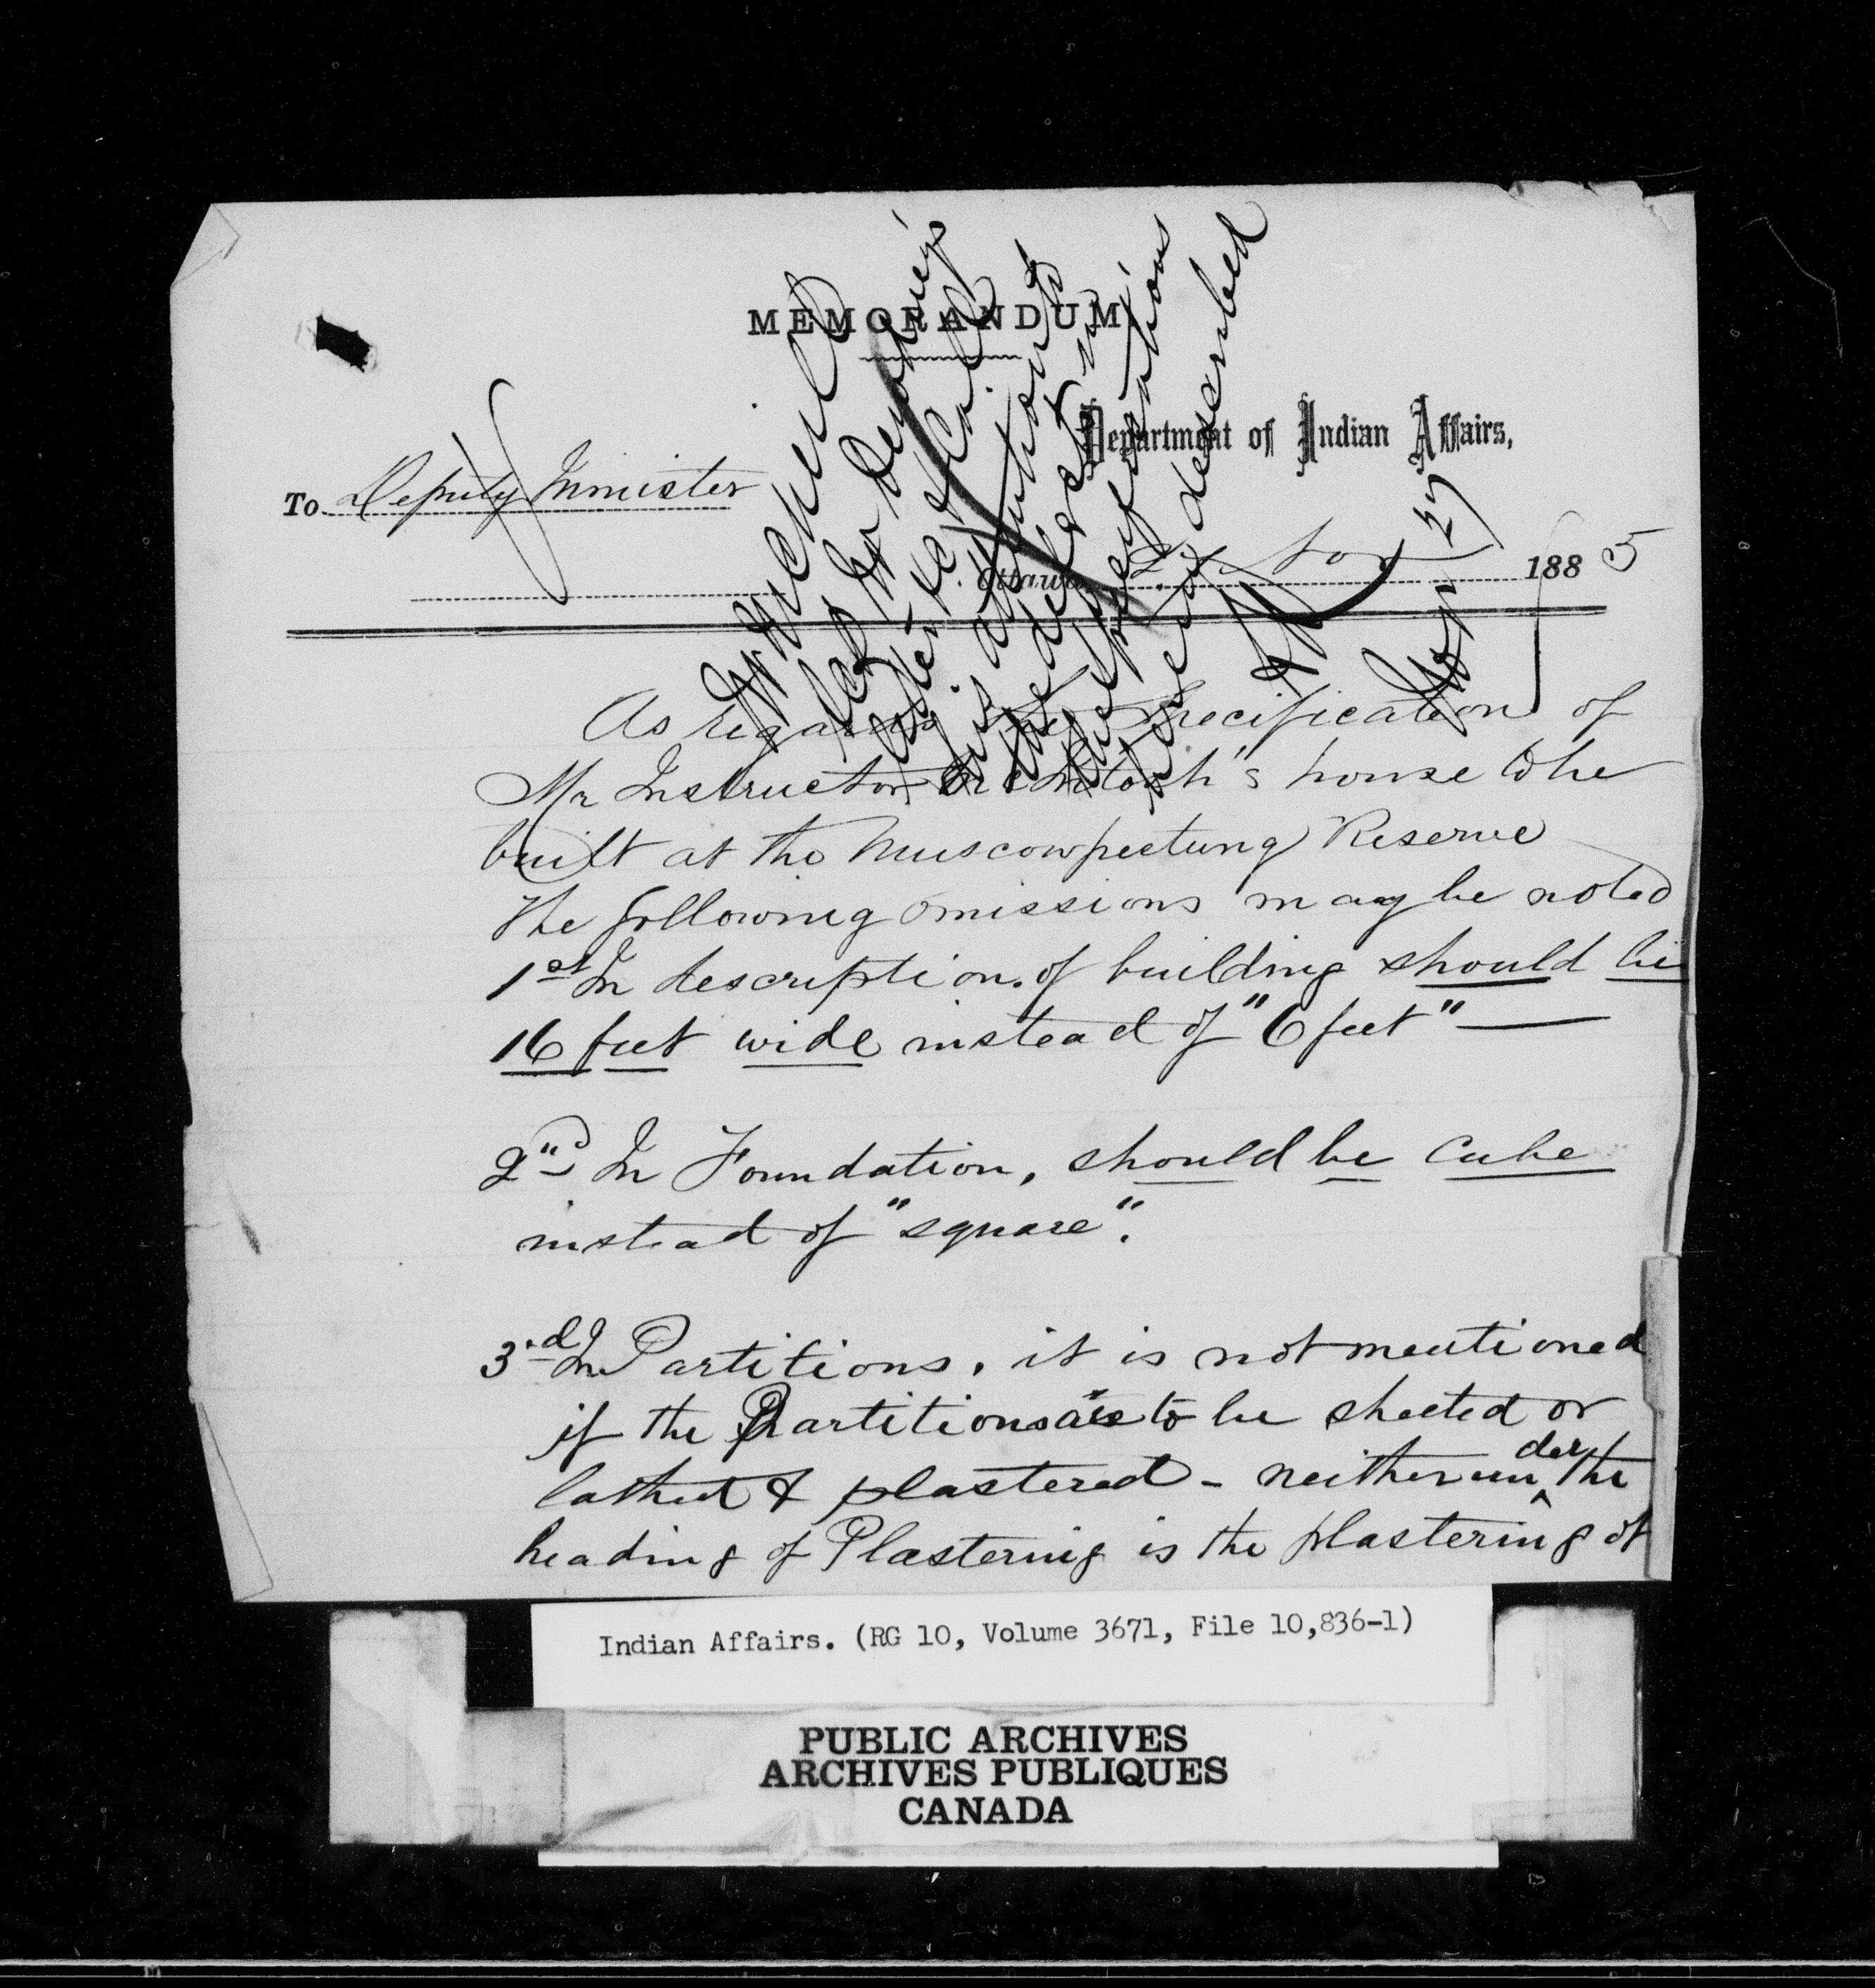 MEMORANDUM
Department of Indian Affairs,
To Deputy Minister
Ottawa, Nov 1885
As regards the Specification of
Mr Instructor McIntosh's house to be
built at the Muscowpeetung Reserve
the following omissions may be noted
1st In description of building should be
16 feet wide instead of "6 feet"
2nd In Foundation, should be Cube
instead of "square".
3rd In Partitions, it is not mentioned
if the Partitions are to be sheeted or
lathed & plastered - neither under the
heading of Plastering is the plastering of
his attention to
the defects in
the specifications
herein described
Nov 27
Indian Affairs. (RG 10, Volume 3671, File 10,836-1)
PUBLIC ARCHIVES
ARCHIVES PUBLIQUES
CANADA